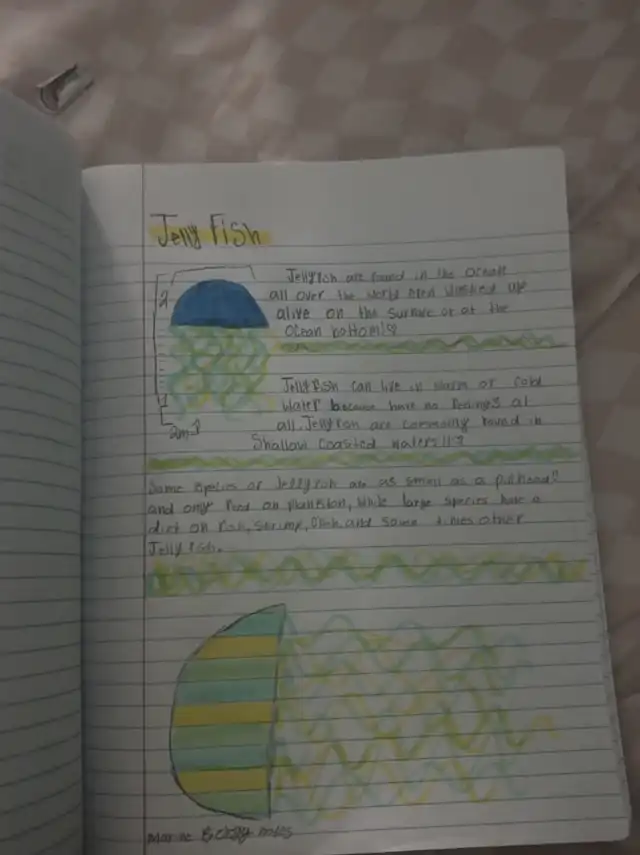 Jelly Fish
Jellyfish are found in the ocean
all over the world washed up
alive on the surface or at the
Ocean bottom!?
2
Jellyfish can live in warm or cold
water because have no feelings at
all. Jellyfish are commonly found in
Shallow coasted waters!!?
2m
Some species of Jellyfish are as small as a pinhead?
and only feed on plankton, while large species have a
diet on fish, shrimp, and some times other
Jelly fish.
Marine Biology notes